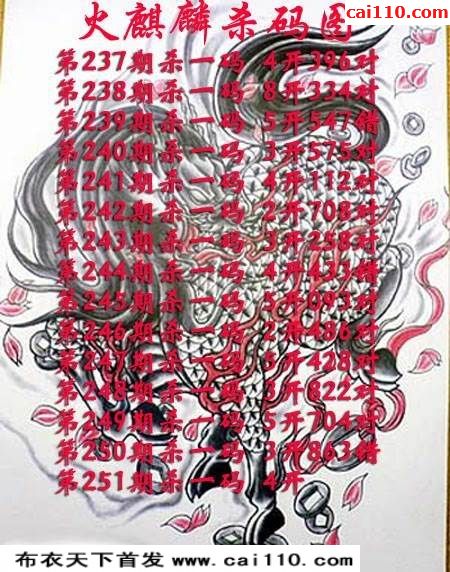 cai110.com
火麒麟杀码图
第237期杀一码 4开396对
第238期杀一码 8开334对
第239期杀一码 5开547错
第240期杀一码 3开575对
第241期杀一码 4开112对
第242期杀一码 2开708对
第243期杀一码 3开258对
第244期杀一码 4开433错
第245期杀一码 5开093对
第246期杀一码 2开486对
第247期杀一码 5开428对
第248期杀一码 3开822对
第249期杀一码 5开704对
第250期杀一码 3开863错
第251期杀一码 4开
布衣天下首发 www.cai110.com